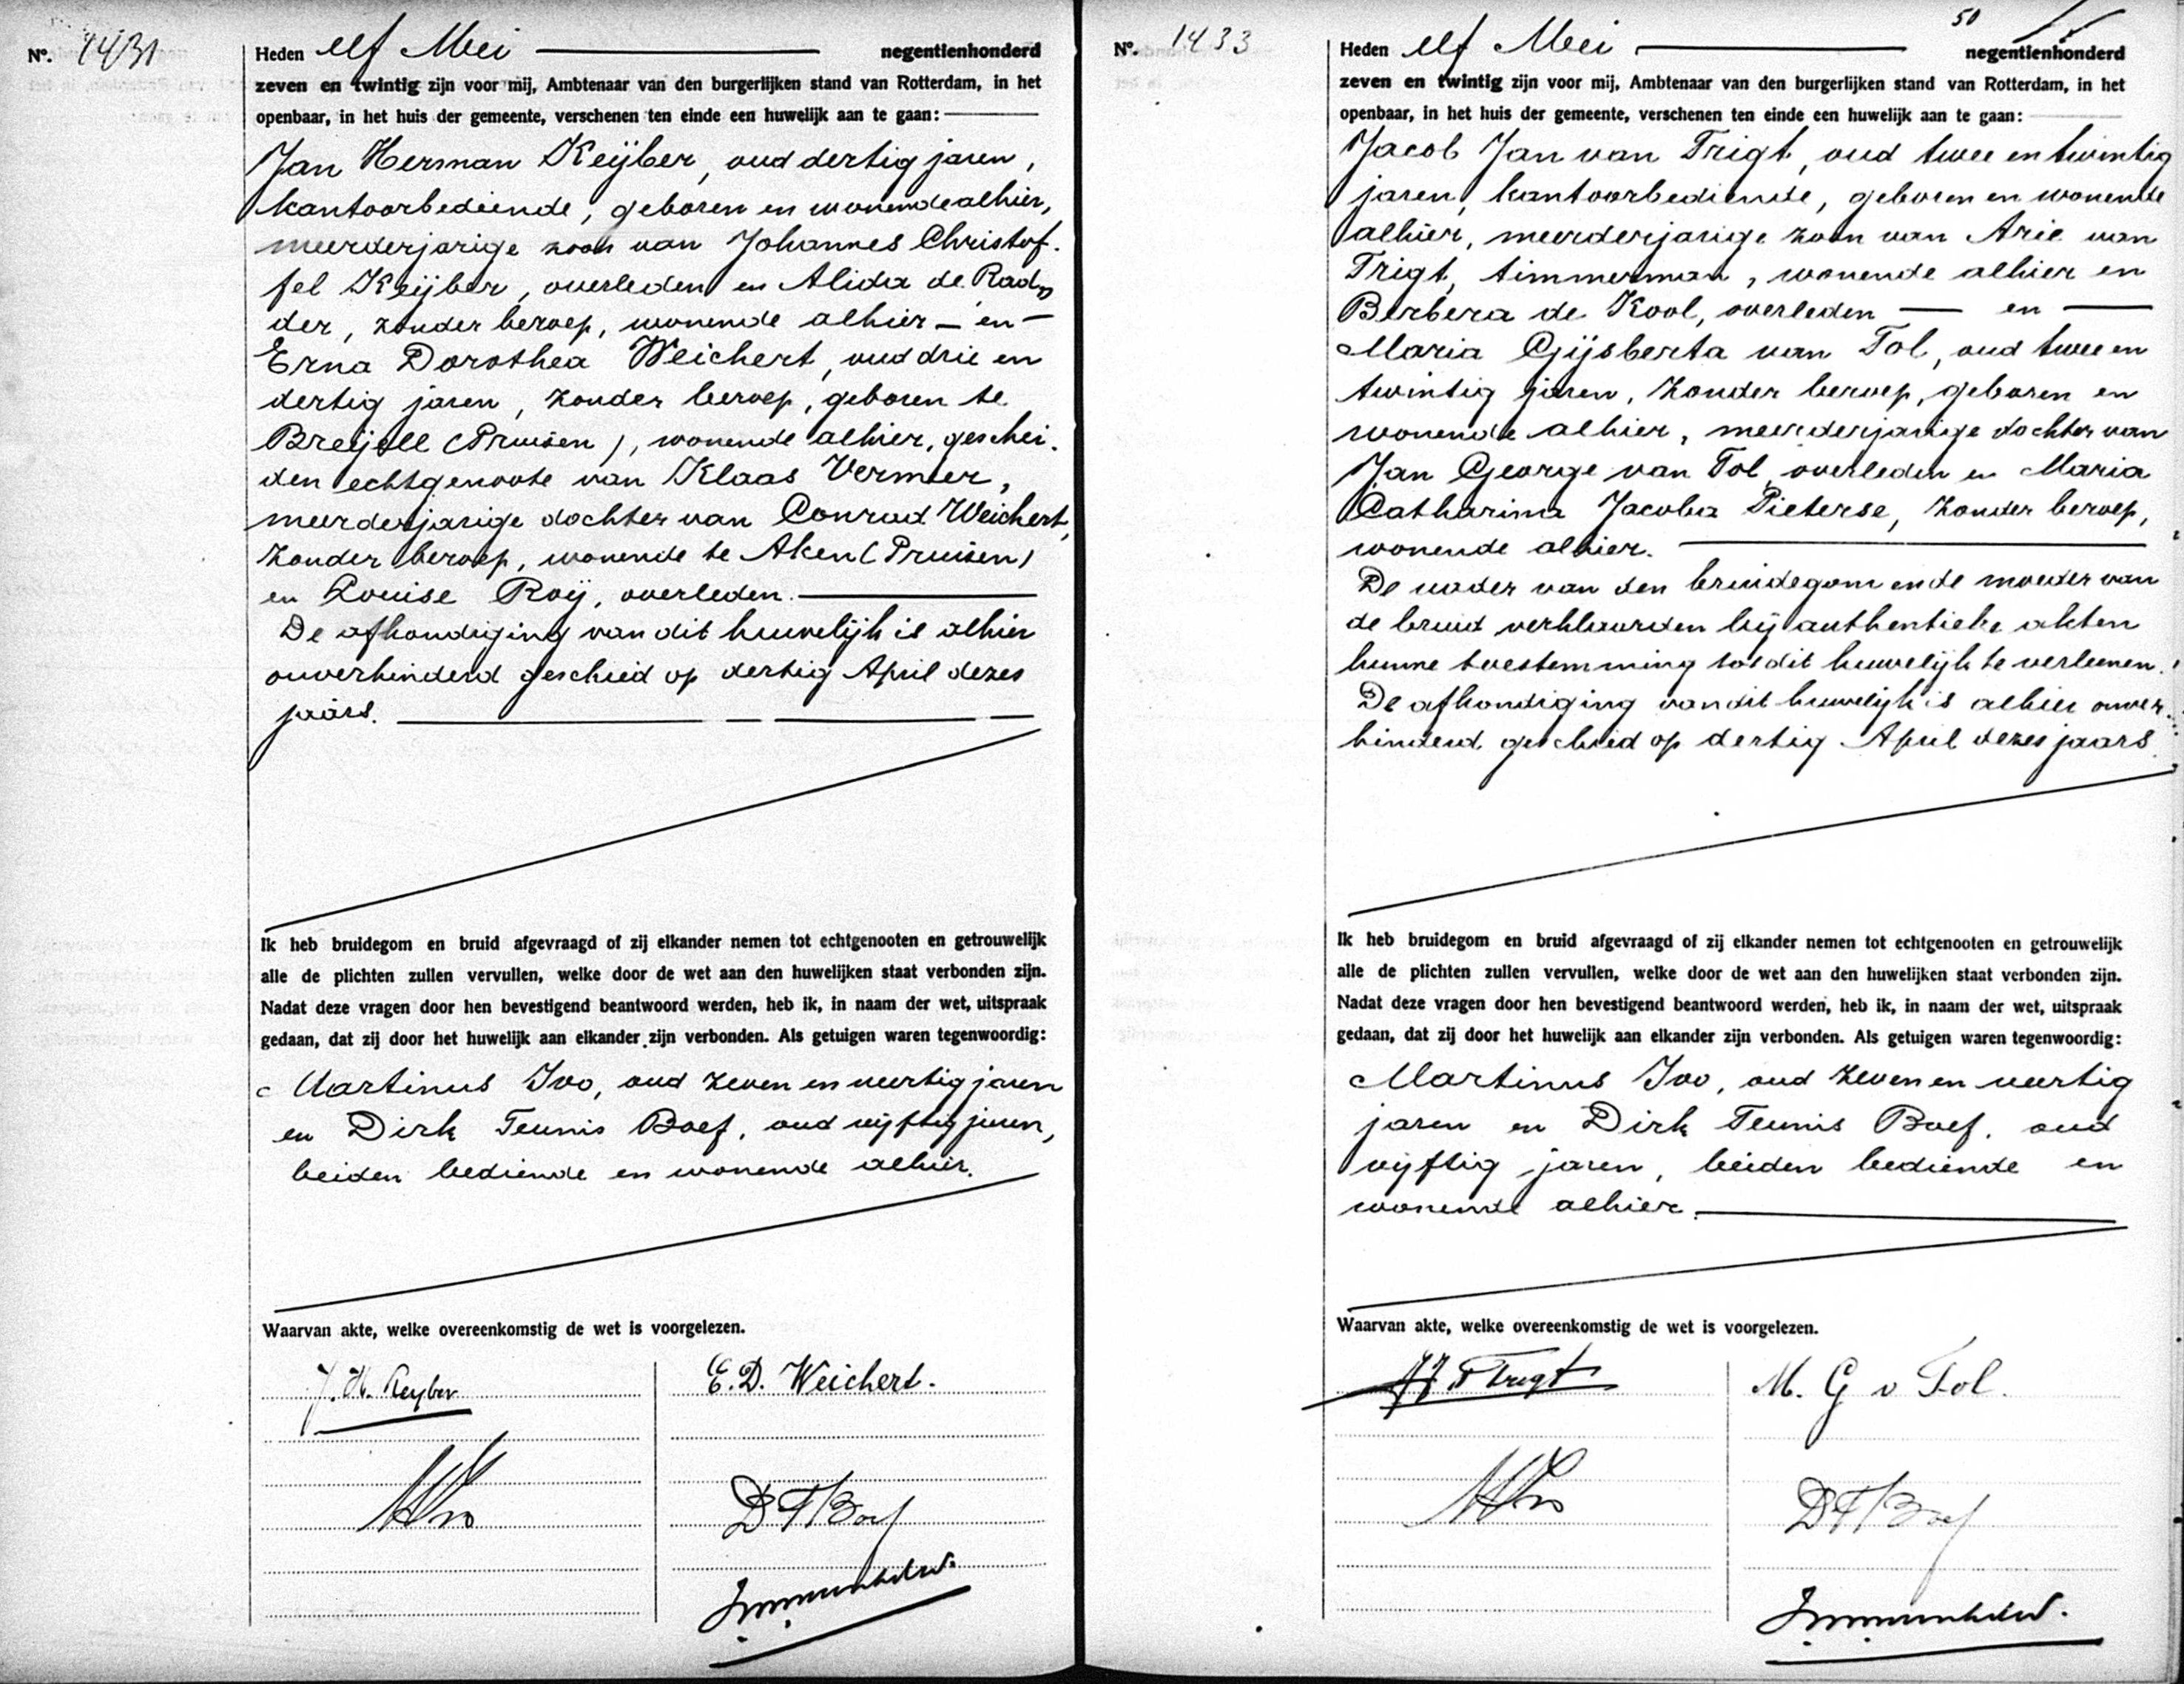 Nº. 1431
Heden elf Mei negentienhonderd
zeven en twintig zijn voor mij, Ambtenaar van den burgerlijken stand van Rotterdam, in het
openbaar, in het huis der gemeente, verschenen ten einde een huwelijk aan te gaan:
Jan Herman Keijber, oud dertig jaren,
kantoorbediende, geboren en wonende alhier,
meerderjarige zoon van Johannes Christof-
fel Keijber, overleden en Alida de Rad
der, zonder beroep, wonende alhier — en —
Erna Dorothea Weichert, oud drie en
dertig jaren, zonder beroep, geboren te
Breijell (Pruisen), wonende alhier, geschei-
den echtgenoote van Klaas Vermeer,
meerderjarige dochter van Conrad Weichert,
zonder beroep, wonende te Aken (Pruisen)
en Louise Roij, overleden.
De afkondiging van dit huwelijk is alhier
onverhinderd geschied op dertig April dezes
jaars.
Ik heb bruidegom en bruid afgevraagd of zij elkander nemen tot echtgenooten en getrouwelijk
alle de plichten zullen vervullen, welke door de wet aan den huwelijken staat verbonden zijn.
Nadat deze vragen door hen bevestigend beantwoord werden, heb ik, in naam der wet, uitspraak
gedaan, dat zij door het huwelijk aan elkander zijn verbonden. Als getuigen waren tegenwoordig:
Martinus Ivo, oud zeven en veertig jaren
en Dirk Teunis Boef, oud vijftig jaren,
beiden bediende en wonende alhier.
Waarvan akte, welke overeenkomstig de wet is voorgelezen.
J. H. Keyber
E. D. Weichert.
MIvo
D T Boef
50
Nº. 1433
Heden elf Mei negentienhonderd
zeven en twintig zijn voor mij, Ambtenaar van den burgerlijken stand van Rotterdam, in het
openbaar, in het huis der gemeente, verschenen ten einde een huwelijk aan te gaan:
Jacob Jan van Trigt, oud twee en twintig
jaren, kantoorbediende, geboren en wonende
alhier, meerderjarige zoon van Arie van
Trigt, timmerman, wonende alhier en
Berbera de Kool, overleden — en —
Maria Gijsberta van Tol, oud twee en
twintig jaren, zonder beroep, geboren en
wonende alhier, meerderjarige dochter van
Jan George van Tol, overleden en Maria
Catharina Jacoba Pieterse, zonder beroep,
wonende alhier.
De vader van den bruidegom en de moeder van
de bruid verklaarden bij authentieke akten
hunne toestemming tot dit huwelijk te verleenen.
De afkondiging van dit huwelijk is alhier onver-
hinderd geschied op dertig April dezes jaars.
Ik heb bruidegom en bruid afgevraagd of zij elkander nemen tot echtgenooten en getrouwelijk
alle de plichten zullen vervullen, welke door de wet aan den huwelijken staat verbonden zijn.
Nadat deze vragen door hen bevestigend beantwoord werden, heb ik, in naam der wet, uitspraak
gedaan, dat zij door het huwelijk aan elkander zijn verbonden. Als getuigen waren tegenwoordig:
Martinus Ivo, oud zeven en veertig
jaren en Dirk Teunis Boef, oud
vijftig jaren, beiden bediende en
wonende alhier.
Waarvan akte, welke overeenkomstig de wet is voorgelezen.
JJ v Trigt
M. G v Tol.
MIvo
D T Boef